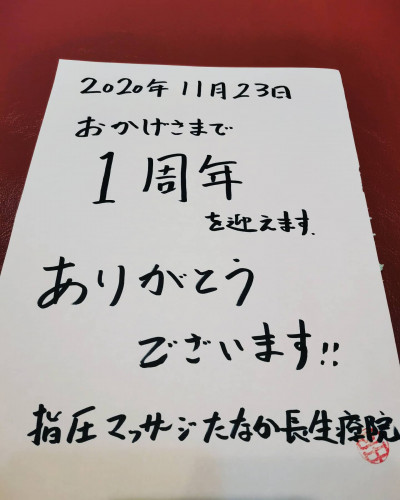 2020年 11月23日
おかげさまで
1周年
を迎えます.
ありがとう
ございます!!
指圧マッサージたなか長生療院